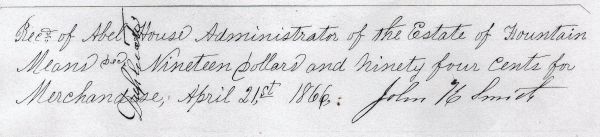 Recd. of Abel House Administrator of the Estate of Fountain
Means Nineteen dollars and ninety four cents for
Merchandise, April 21st 1866. John H Smith